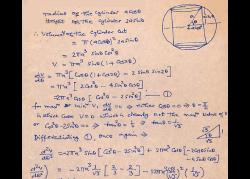 radius of the cylinder a cosθ
Height of the cylinder 2a sinθ
∴ Volume of the Cylinder Cut
= π (a cosθ)² 2a sinθ
= 2πa³ sinθ cos²θ
V = πa³ sinθ (1 + cos2θ)
dV/dθ = πa³ [cosθ (1 + cos2θ) − 2 sinθ sin2θ
= πa³ [2cos³θ − 4 sin²θ cosθ]
= 2πa³ cosθ [cos²θ − 2sin²θ] — ①
for max or min V, dV/dθ = 0 ⇒ either cosθ = 0 ⇒ θ = π/2
in which case V = 0 which is clearly not the max value of V
or cos²θ − 2sin²θ = 0 ⇒ tan²θ = 1/2 ⇒ tanθ = 1/√2
Differentiating ①, once again →
d²V/dθ² = −2πa³ sinθ [cos²θ − 2sin²θ] + 2πa³ cosθ [−2cosθ sinθ
− 4 sinθ cosθ]